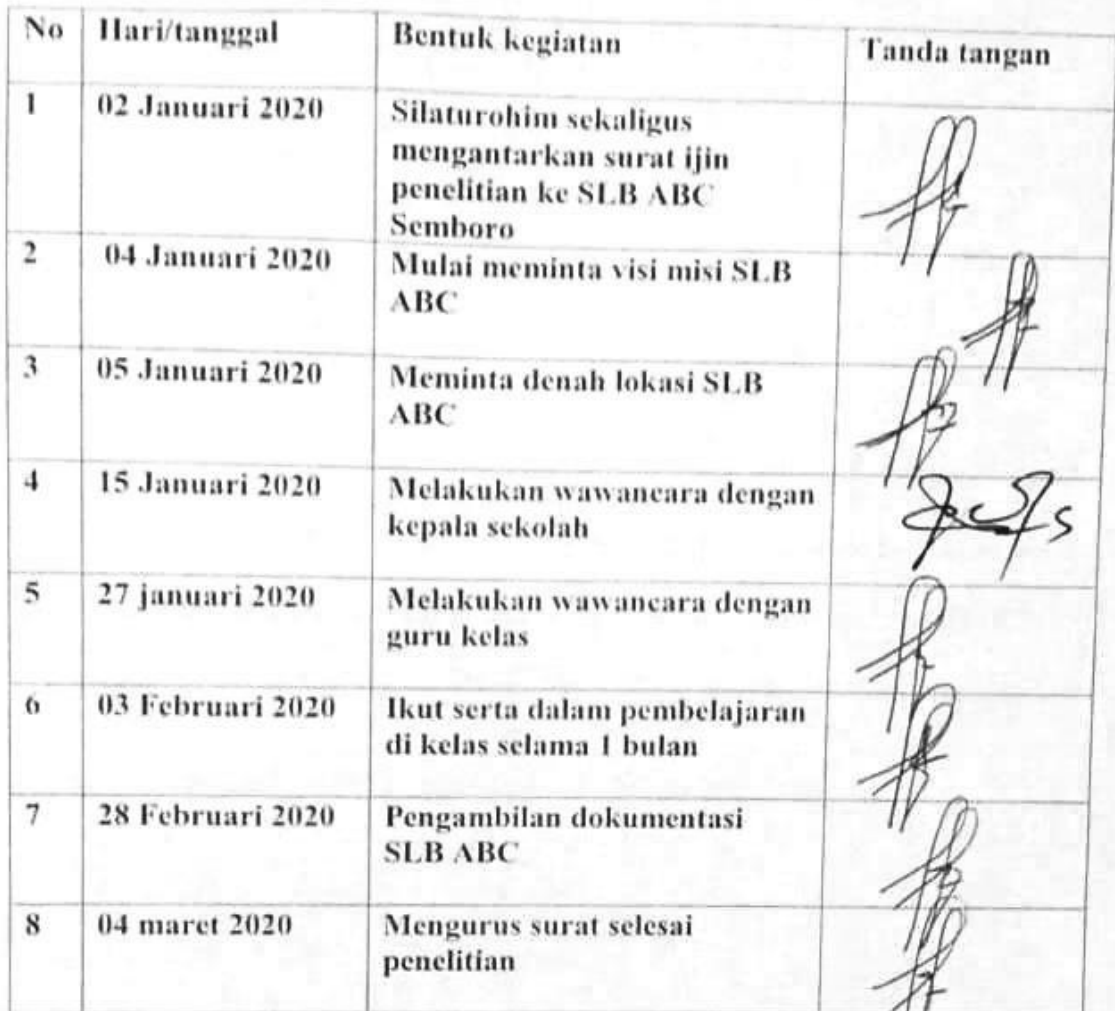 No Hari/tanggal Bentuk kegiatan Tanda tangan
1 02 Januari 2020 Silaturohim sekaligus
mengantarkan surat ijin
penelitian ke SLB ABC
Semboro
2 04 Januari 2020 Mulai meminta visi misi SLB
ABC
3 05 Januari 2020 Meminta denah lokasi SLB
ABC
4 15 Januari 2020 Melakukan wawancara dengan
kepala sekolah
5 27 januari 2020 Melakukan wawancara dengan
guru kelas
6 03 Februari 2020 Ikut serta dalam pembelajaran
di kelas selama 1 bulan
7 28 Februari 2020 Pengambilan dokumentasi
SLB ABC
8 04 maret 2020 Mengurus surat selesai
penelitian